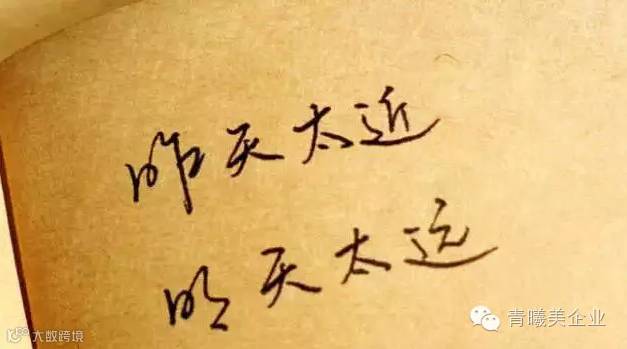 昨天太近
明天太远
青曦美企业
大数跨境